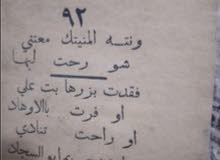 ٩٢
ونتسه المنيتك معتني
شو رحت لها
فقدت بزرها بت علي
او فرت بالاوهاد
او راحت تنادي
السجان